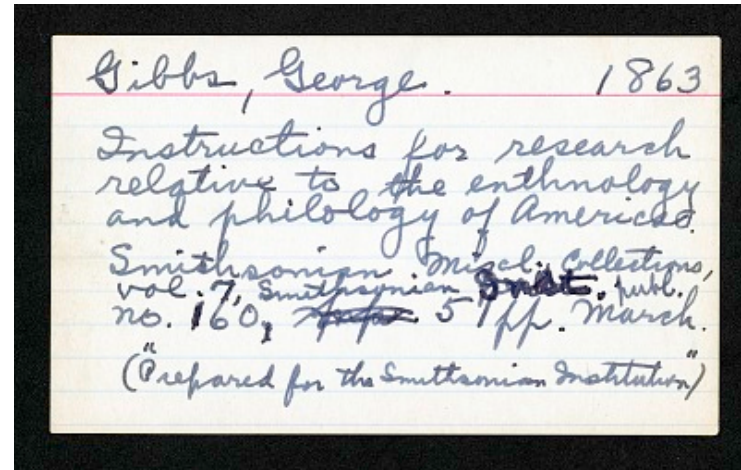 Gibbs, George. 1863
Instructions for research
relative to the enthnology
and philology of America.
Smithsonian Miscl. Collections,
vol. 7, Smithsonian Inst. publ.
no. 160, 51 pp. March.
("Prepared for the Smithsonian Institution")